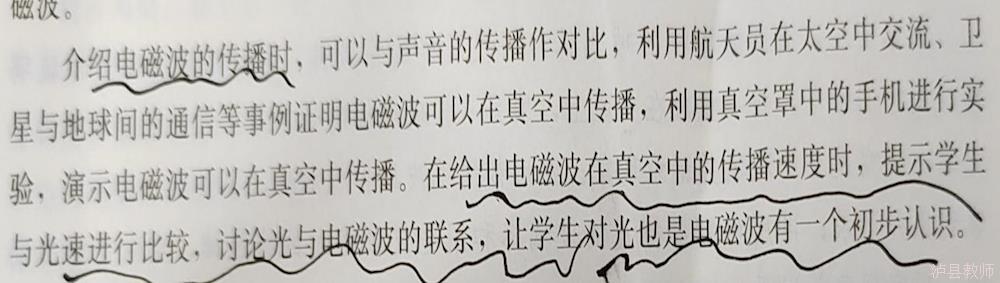 磁波。
介绍电磁波的传播时，可以与声音的传播作对比，利用航天员在太空中交流、卫
星与地球间的通信等事例证明电磁波可以在真空中传播，利用真空罩中的手机进行实
验，演示电磁波可以在真空中传播。在给出电磁波在真空中的传播速度时，提示学生
与光速进行比较，讨论光与电磁波的联系，让学生对光也是电磁波有一个初步认识。
泸县教师